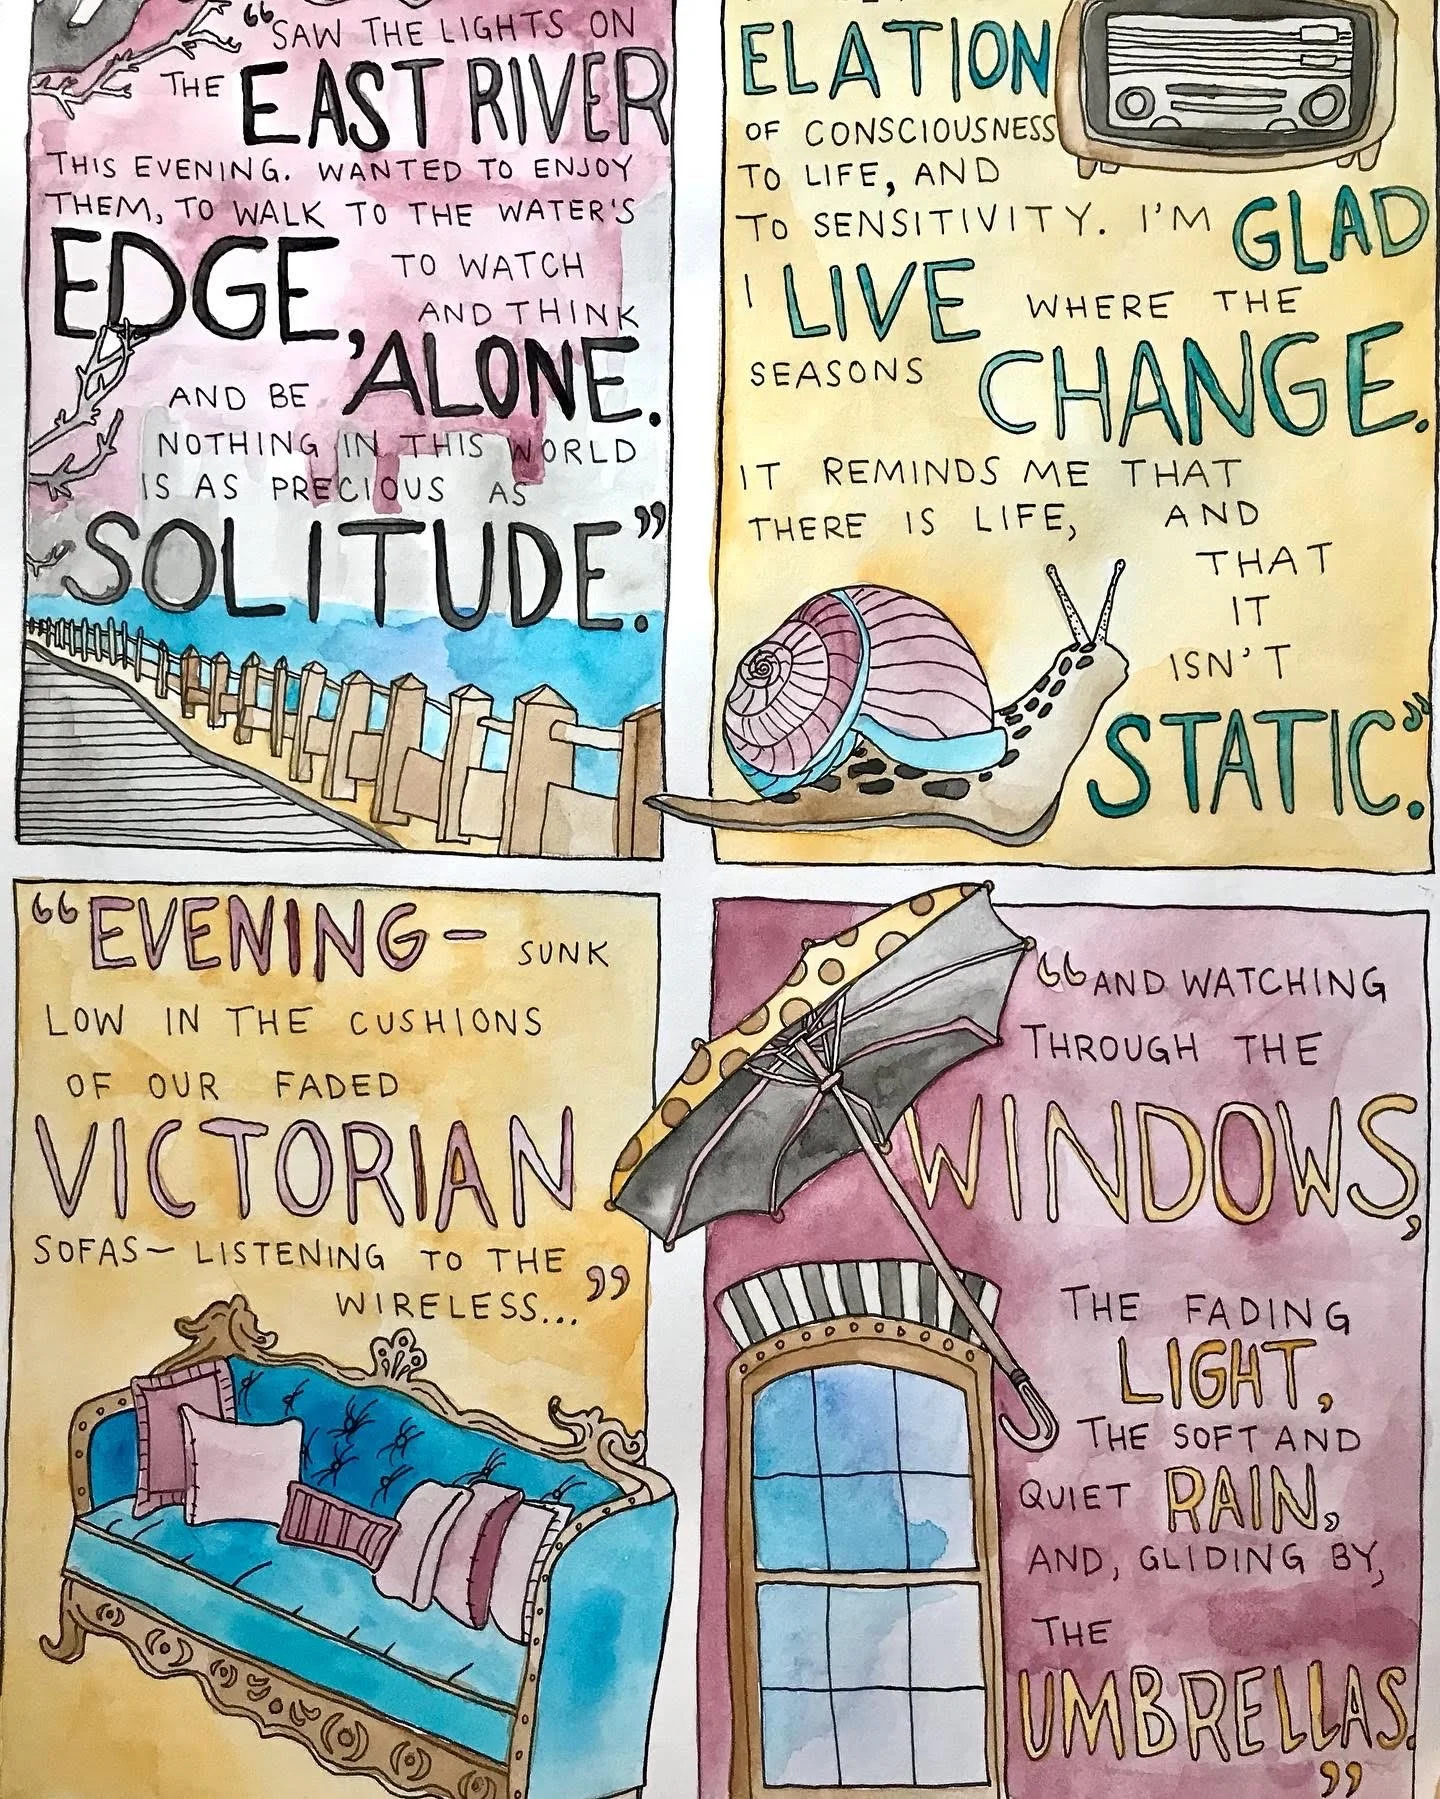 “SAW THE LIGHTS ON
THE EAST RIVER
THIS EVENING. WANTED TO ENJOY
THEM, TO WALK TO THE WATER'S
EDGE, TO WATCH
AND THINK
AND BE ALONE.
NOTHING IN THIS WORLD
IS AS PRECIOUS AS
SOLITUDE.”
ELATION
OF CONSCIOUSNESS
TO LIFE, AND
TO SENSITIVITY. I'M GLAD
I LIVE WHERE THE
SEASONS CHANGE.
IT REMINDS ME THAT
THERE IS LIFE, AND
THAT
IT
ISN'T
STATIC.”
“EVENING- SUNK
LOW IN THE CUSHIONS
OF OUR FADED
VICTORIAN
SOFAS- LISTENING TO THE
WIRELESS...”
“AND WATCHING
THROUGH THE
WINDOWS,
THE FADING
LIGHT,
THE SOFT AND
QUIET RAIN,
AND, GLIDING BY,
THE
UMBRELLAS.”